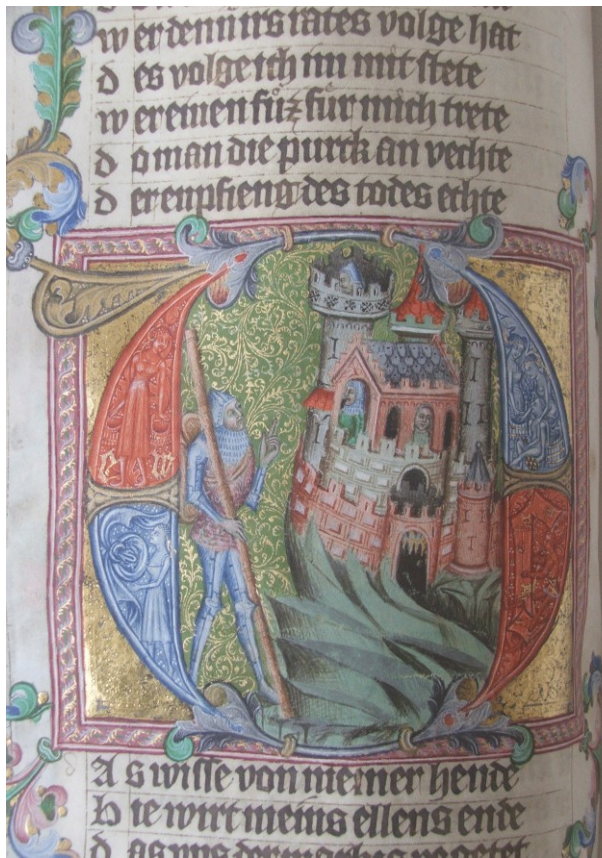 w erdenn irs rates volge hat
d es volge ich im mit stete
w er einen fůz für mich trete
d o man die purck an vechte
d er enpfieng des todes echte
A s wisse von meiner hende
h ie wirt meins ellens ende